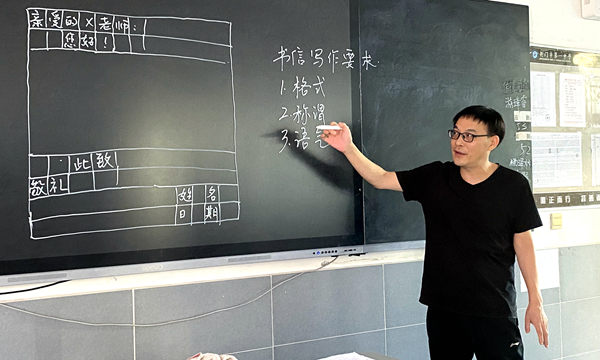 亲爱的X老师：
您好！
此致！
敬礼
姓名
日期
书信写作要求.
1.格式
2.称谓
3.语气